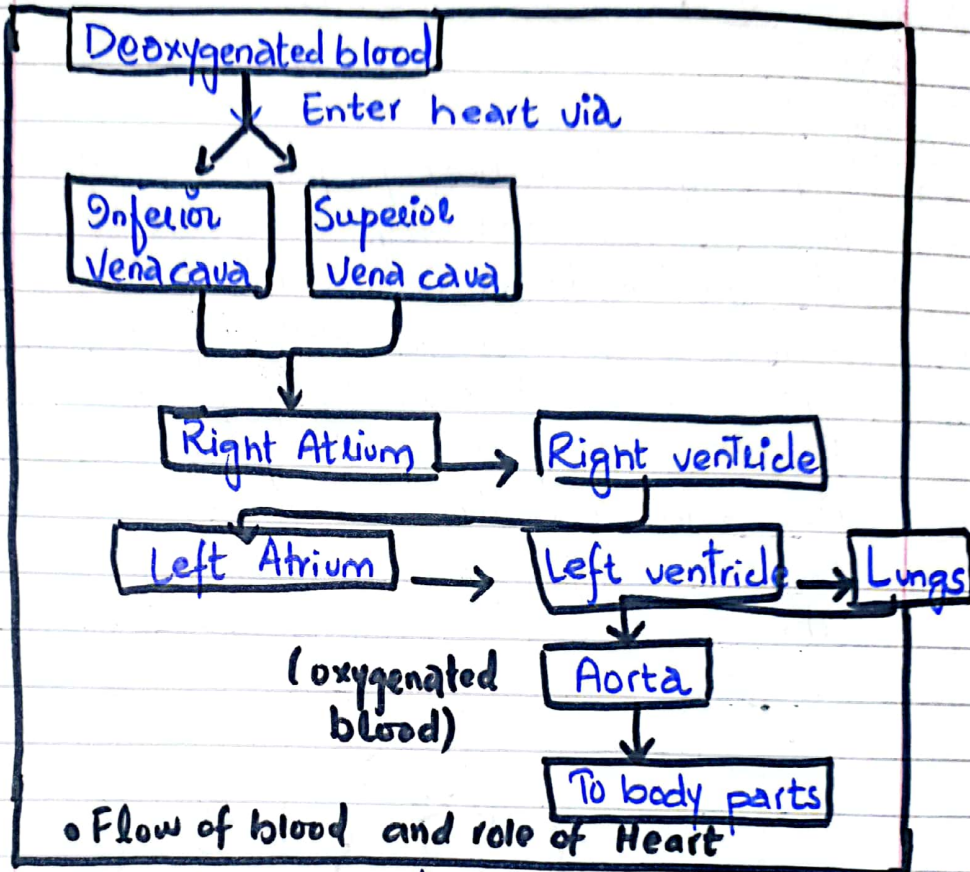 Deoxygenated blood
Enter heart via
Inferior
Vena cava
Superior
Vena cava
Right Atrium
Right ventricle
Left Atrium
Left ventricle
Lungs
(oxygenated
blood)
Aorta
To body parts
• Flow of blood and role of Heart